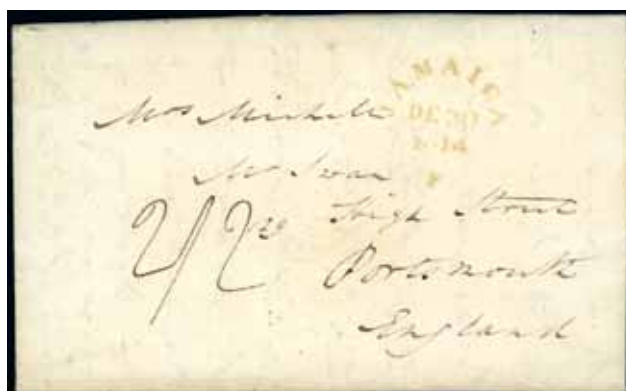 JAMAICA
Mrs Michell
Mr Swan
2/2
High Street
Portsmouth
England